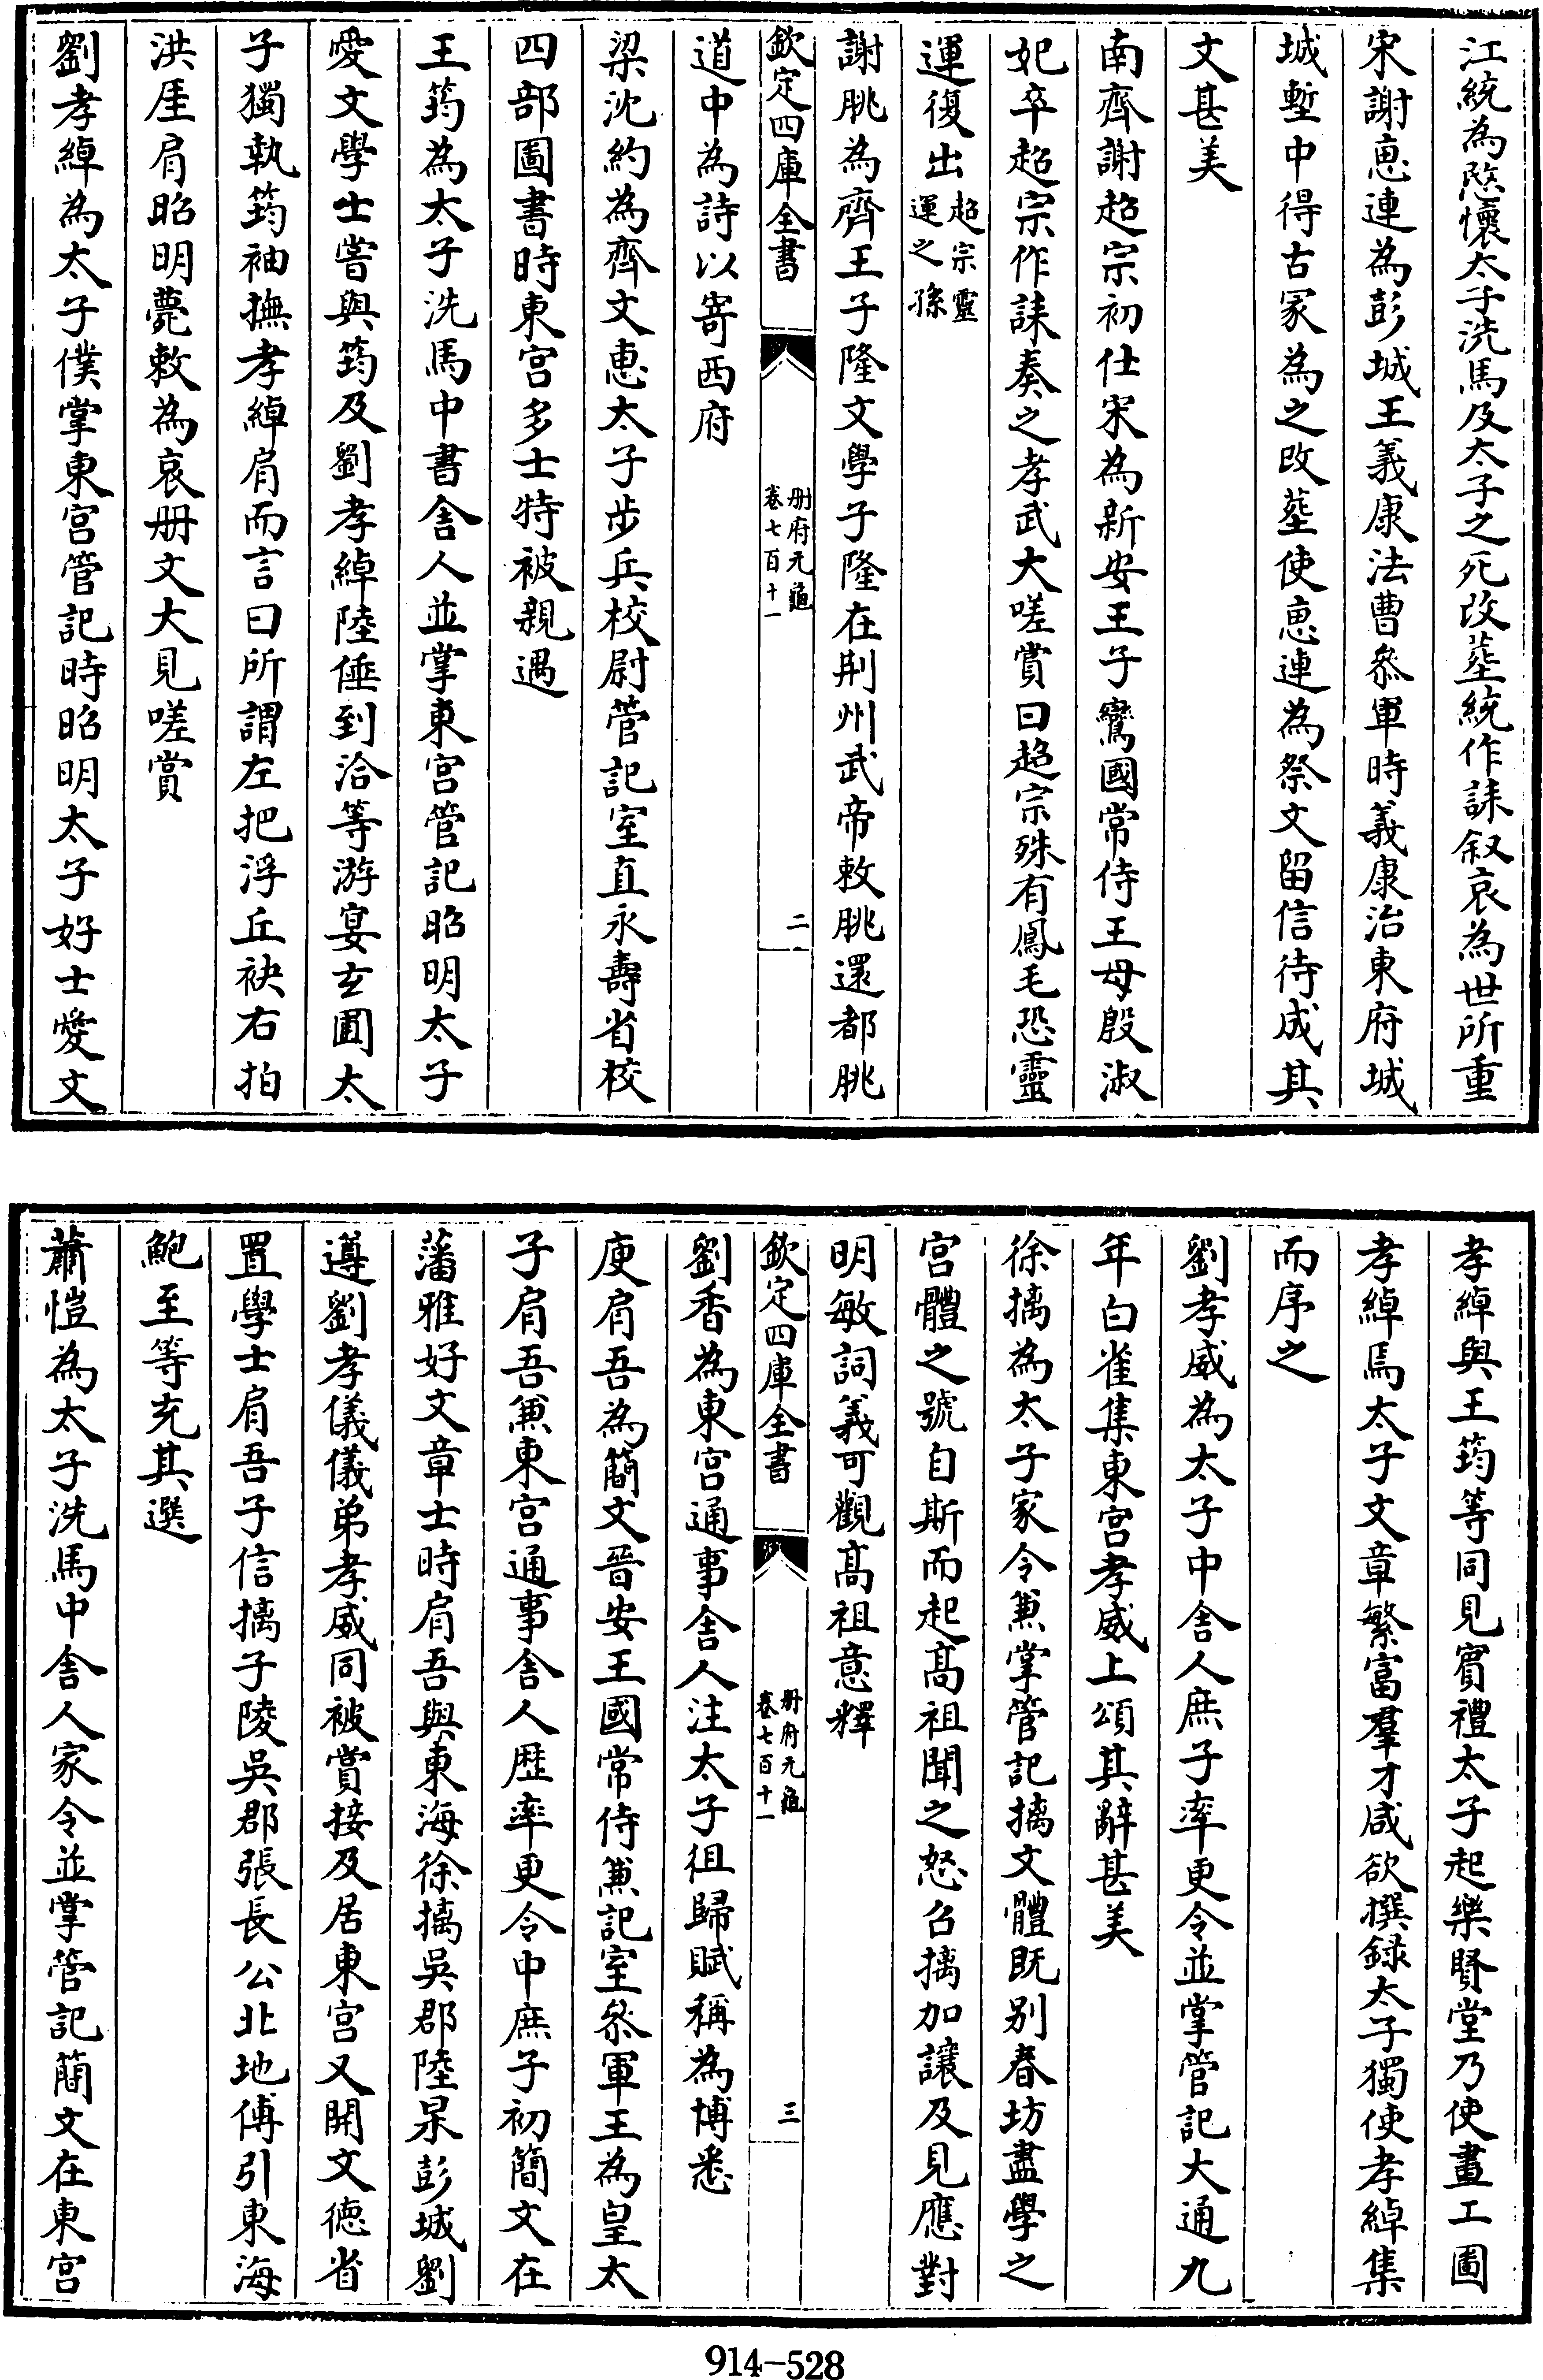 江統為愍懷太子洗馬及太子之死改塟統作誄叙哀為世所重
宋謝恵連為彭城王義康法曹叅軍時義康治東府城
城塹中得古冢為之改塟使恵連為祭文留信待成其
文甚美
南齊謝超宗初仕宋為新安王子鸞國常侍王母殷淑
妃卒超宗作誄奏之孝武大嗟賞曰超宗殊有鳳毛恐靈
運復出超宗靈運之孫
謝朓為齊王子隆文學子隆在荆州武帝敕朓還都朓
欽定四庫全書
册府元龜
卷七百十一
二
道中為詩以寄西府
梁沈約為齊文惠太子步兵校尉管記室直永壽省校
四部圖書時東宫多士特被親遇
王筠為太子洗馬中書舍人並掌東宫管記昭明太子
愛文學士嘗與筠及劉孝綽陸倕到洽等游宴玄圃太
子獨執筠袖撫孝綽肩而言曰所謂左把浮丘袂右拍
洪厓肩昭明薨敕為哀册文大見嗟賞
劉孝綽為太子僕掌東宫管記時昭明太子好士愛文
孝綽與王筠等同見賔禮太子起樂賢堂乃使畫工圖
孝綽焉太子文章繁富羣才咸欲撰録太子獨使孝綽集
而序之
劉孝威為太子中舍人庶子率更令並掌管記大通九
年白雀集東宫孝威上頌其辭甚美
徐摛為太子家令兼掌管記摛文體既别春坊盡學之
宫體之號自斯而起髙祖聞之怒召摛加讓及見應對
明敏詞義可觀髙祖意釋
欽定四庫全書
册府元龜
卷七百十一
三
劉香為東宫通事舍人注太子徂歸賦稱為博悉
庾肩吾為簡文晉安王國常侍兼記室叅軍王為皇太
子肩吾兼東宫通事舍人歴率更令中庶子初簡文在
藩雅好文章士時肩吾與東海徐摛吳郡陸杲彭城劉
遵劉孝儀儀弟孝威同被賞接及居東宫又開文德省
置學士肩吾子信摛子陵吳郡張長公北地傅引東海
鮑至等充其選
蕭愷為太子洗馬中舍人家令並掌管記簡文在東宫
914-528